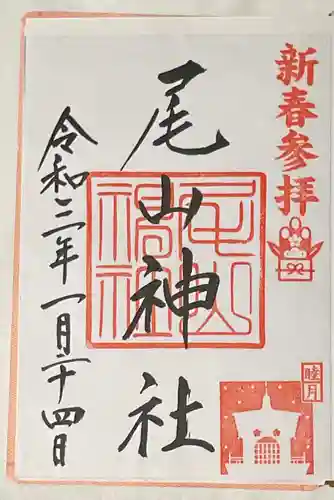 新春参拝
睦月
尾山神社
令和三年一月二十四日